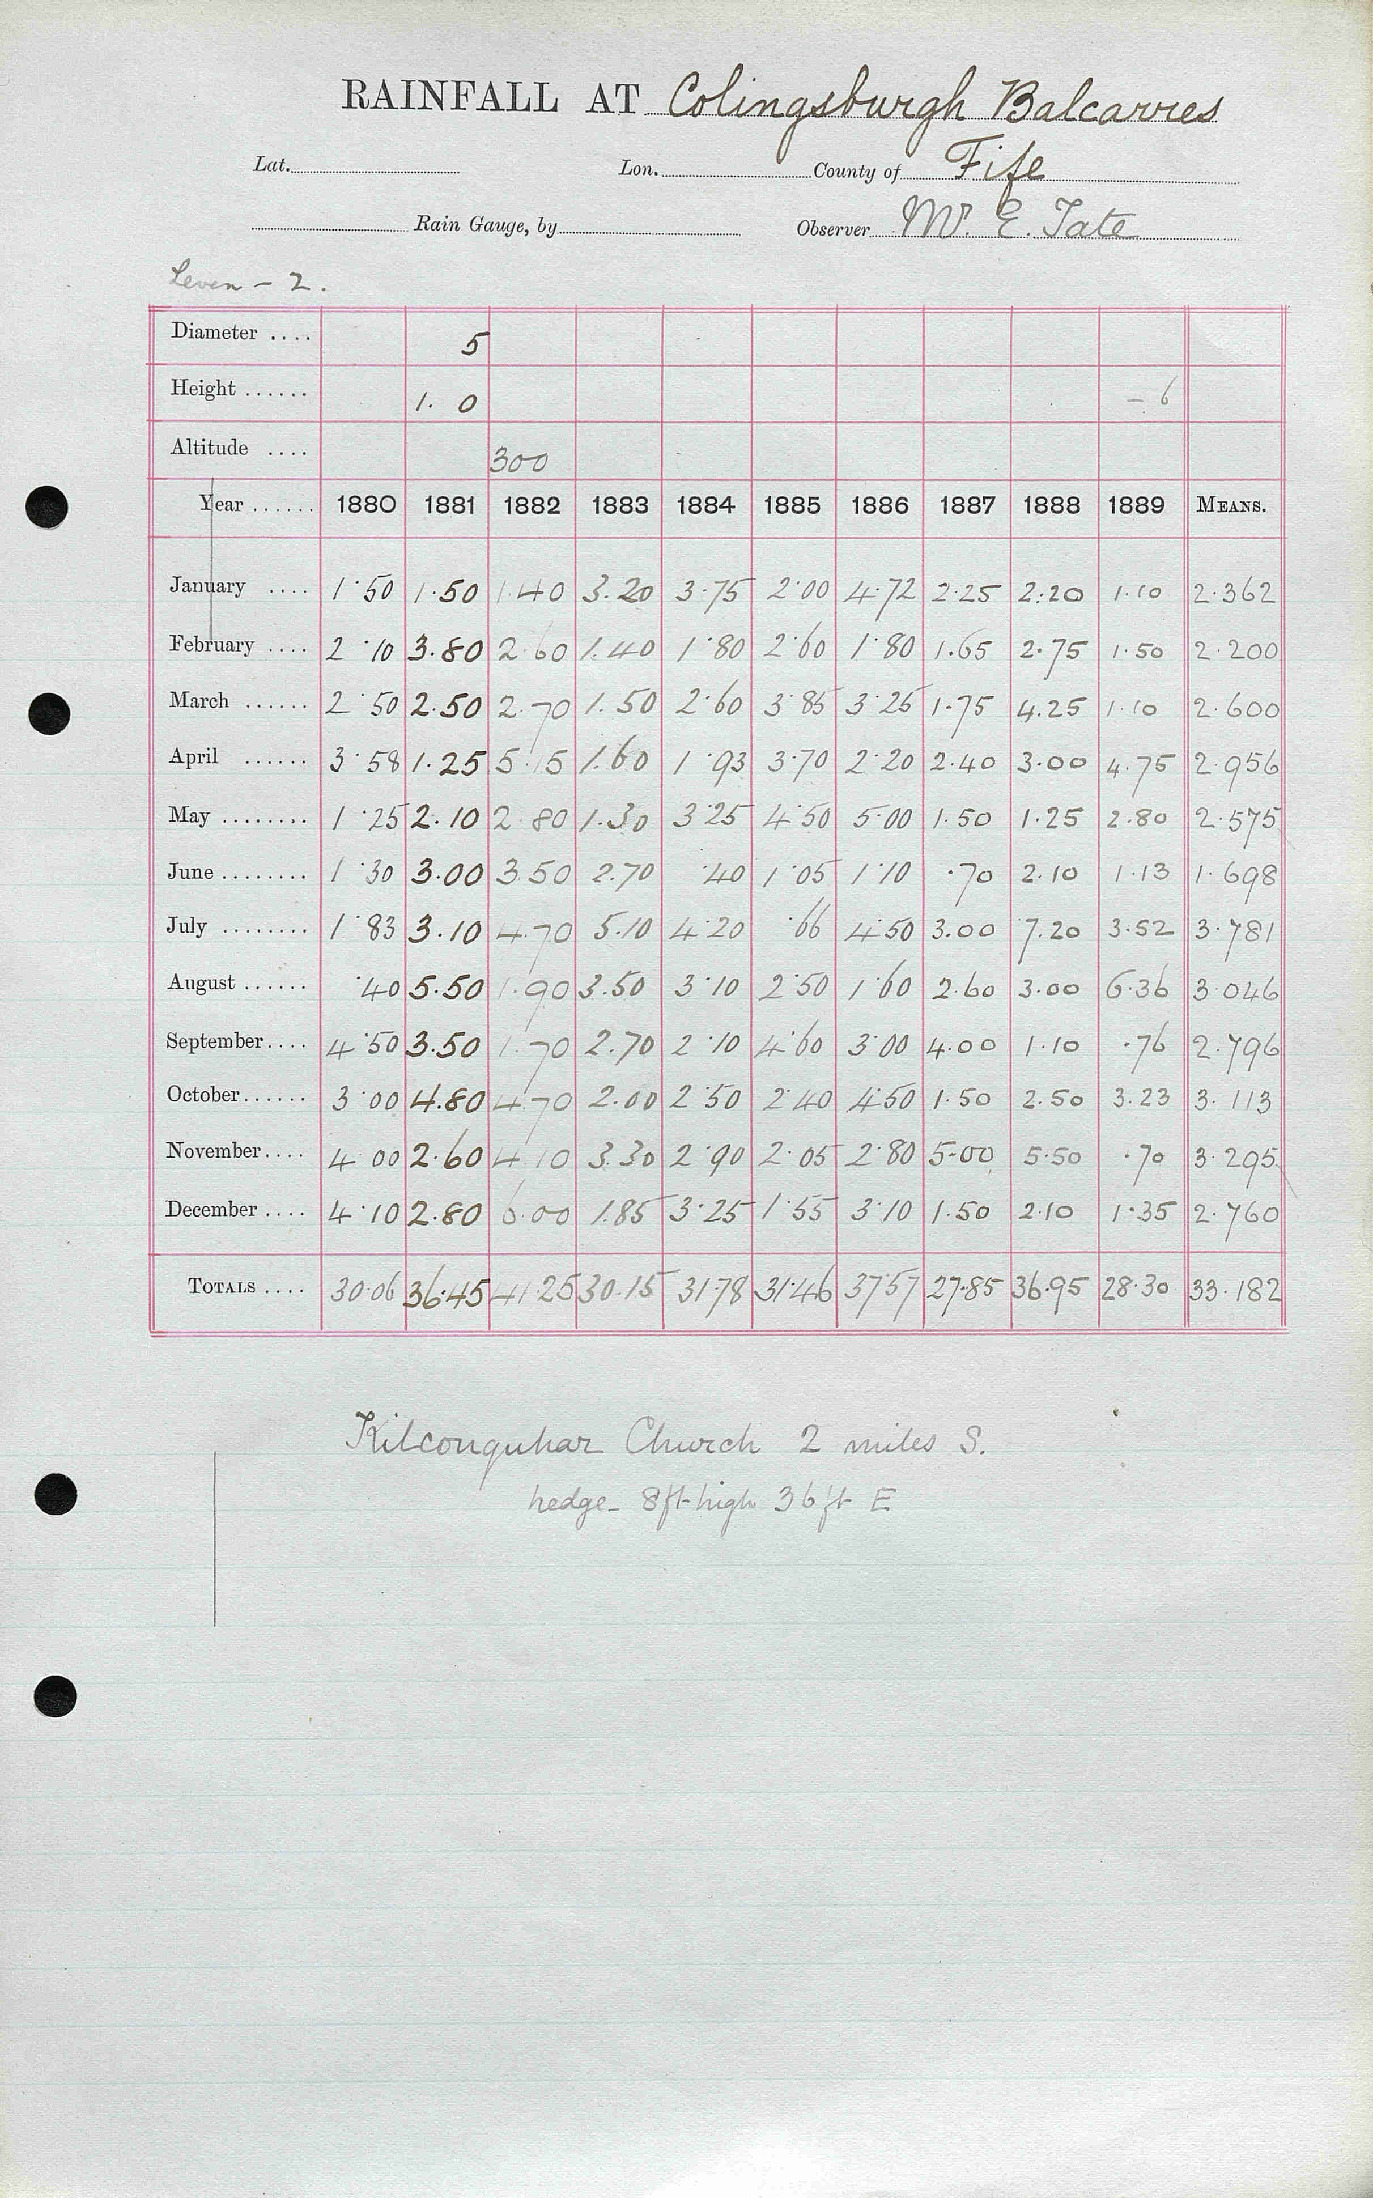 RAINFALL AT Colingsburgh Balcarres
Lat. Lon. County of Fife
Rain Gauge, by Observer Mr. E. Tate
Leven - 2.
Diameter .... 5
Height ...... 1. 0 - 6
Altitude .... 300
Year ...... 1880 1881 1882 1883 1884 1885 1886 1887 1888 1889 MEANS.
January .... 1.50 1.50 1.40 3.20 3.75 2.00 4.72 2.25 2.20 1.10 2.362
February .... 2.10 3.80 2.60 1.40 1.80 2.60 1.80 1.65 2.75 1.50 2.200
March ...... 2.50 2.50 2.70 1.50 2.60 3.85 3.25 1.75 4.25 1.10 2.600
April ...... 3.58 1.25 5.15 1.60 1.93 3.70 2.20 2.40 3.00 4.75 2.956
May ........ 1.25 2.10 2.80 1.30 3.25 4.50 5.00 1.50 1.25 2.80 2.575
June ........ 1.30 3.00 3.50 2.70 .40 1.05 1.10 .70 2.10 1.13 1.698
July ........ 1.83 3.10 4.70 5.10 4.20 .66 4.50 3.00 7.20 3.52 3.781
August ...... .40 5.50 1.90 3.50 3.10 2.50 1.60 2.60 3.00 6.36 3.046
September.... 4.50 3.50 1.70 2.70 2.10 4.60 3.00 4.00 1.10 .76 2.796
October...... 3.00 4.80 4.70 2.00 2.50 2.40 4.50 1.50 2.50 3.23 3.113
November.... 4.00 2.60 4.10 3.30 2.90 2.05 2.80 5.00 5.50 .70 3.295
December .... 4.10 2.80 6.00 1.85 3.25 1.55 3.10 1.50 2.10 1.35 2.760
TOTALS .... 30.06 36.45 41.25 30.15 31.78 31.46 37.57 27.85 36.95 28.30 33.182
Kilconquhar Church 2 miles S.
hedge - 8ft high 36ft E